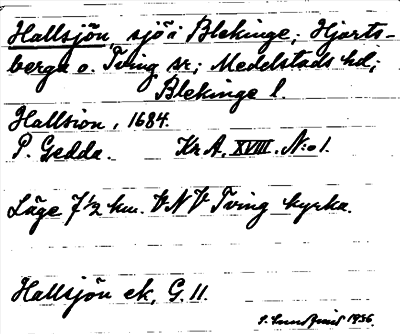 Hallsjön, sjö i Blekinge; Hjorts-
berga o. Tving sr; Medelstads hd;
Blekinge l.
Hallsion, 1684.
P. Gedda. Kr A, XVIII. N:o 1.
Läge 7 1/2 km. VNV Tving kyrka.
Hallsjön ek, G. 11.
1936